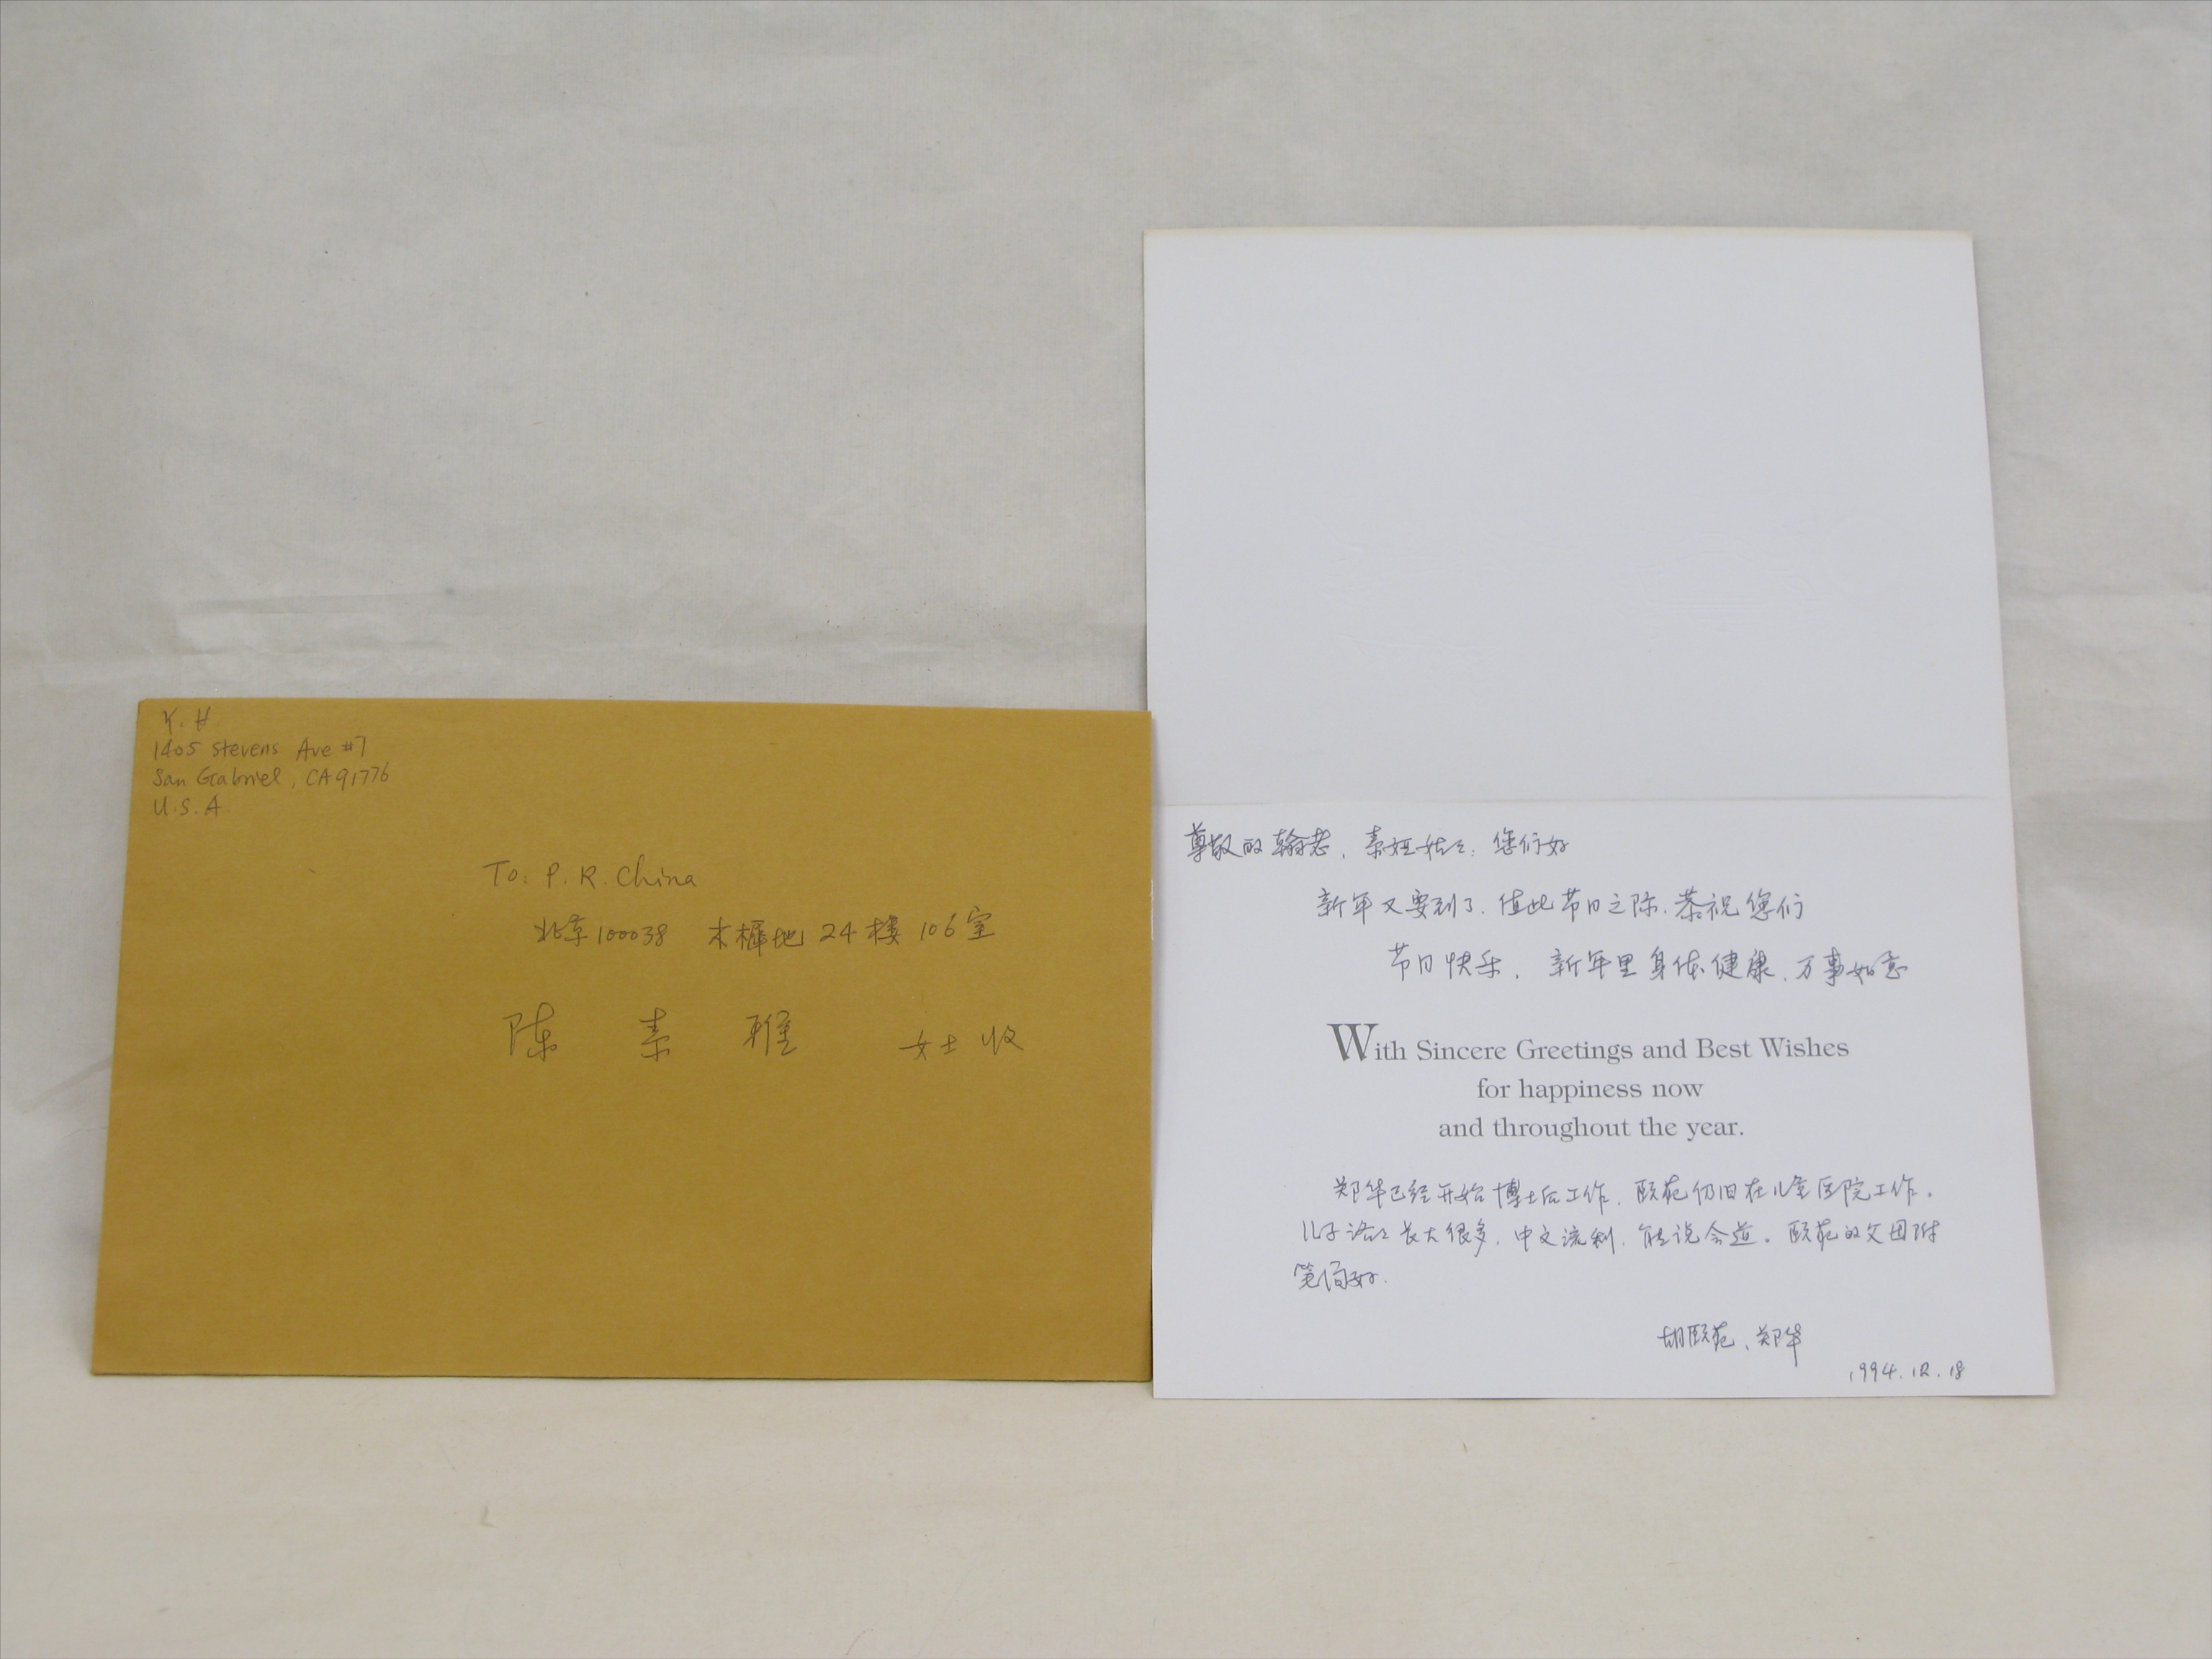 Y. H
1405 Stevens Ave #7
San Gabriel, CA 91776
U.S.A.
To: P. R. China
北京100038 木樨地 24楼 106室
陈 素 雅 女士 收
尊敬的翰老、素娅姑姑: 您们好
新年又要到了. 值此节日之际. 恭祝您们
节日快乐, 新年里身体健康、万事如意
With Sincere Greetings and Best Wishes
for happiness now
and throughout the year.
郑华已经开始博士后工作. 颐苑仍旧在儿童医院工作.
儿子 长大很多. 中文流利. 能说会道。颐苑的父母附
笔问好.
胡颐苑、郑华
1994.12.18